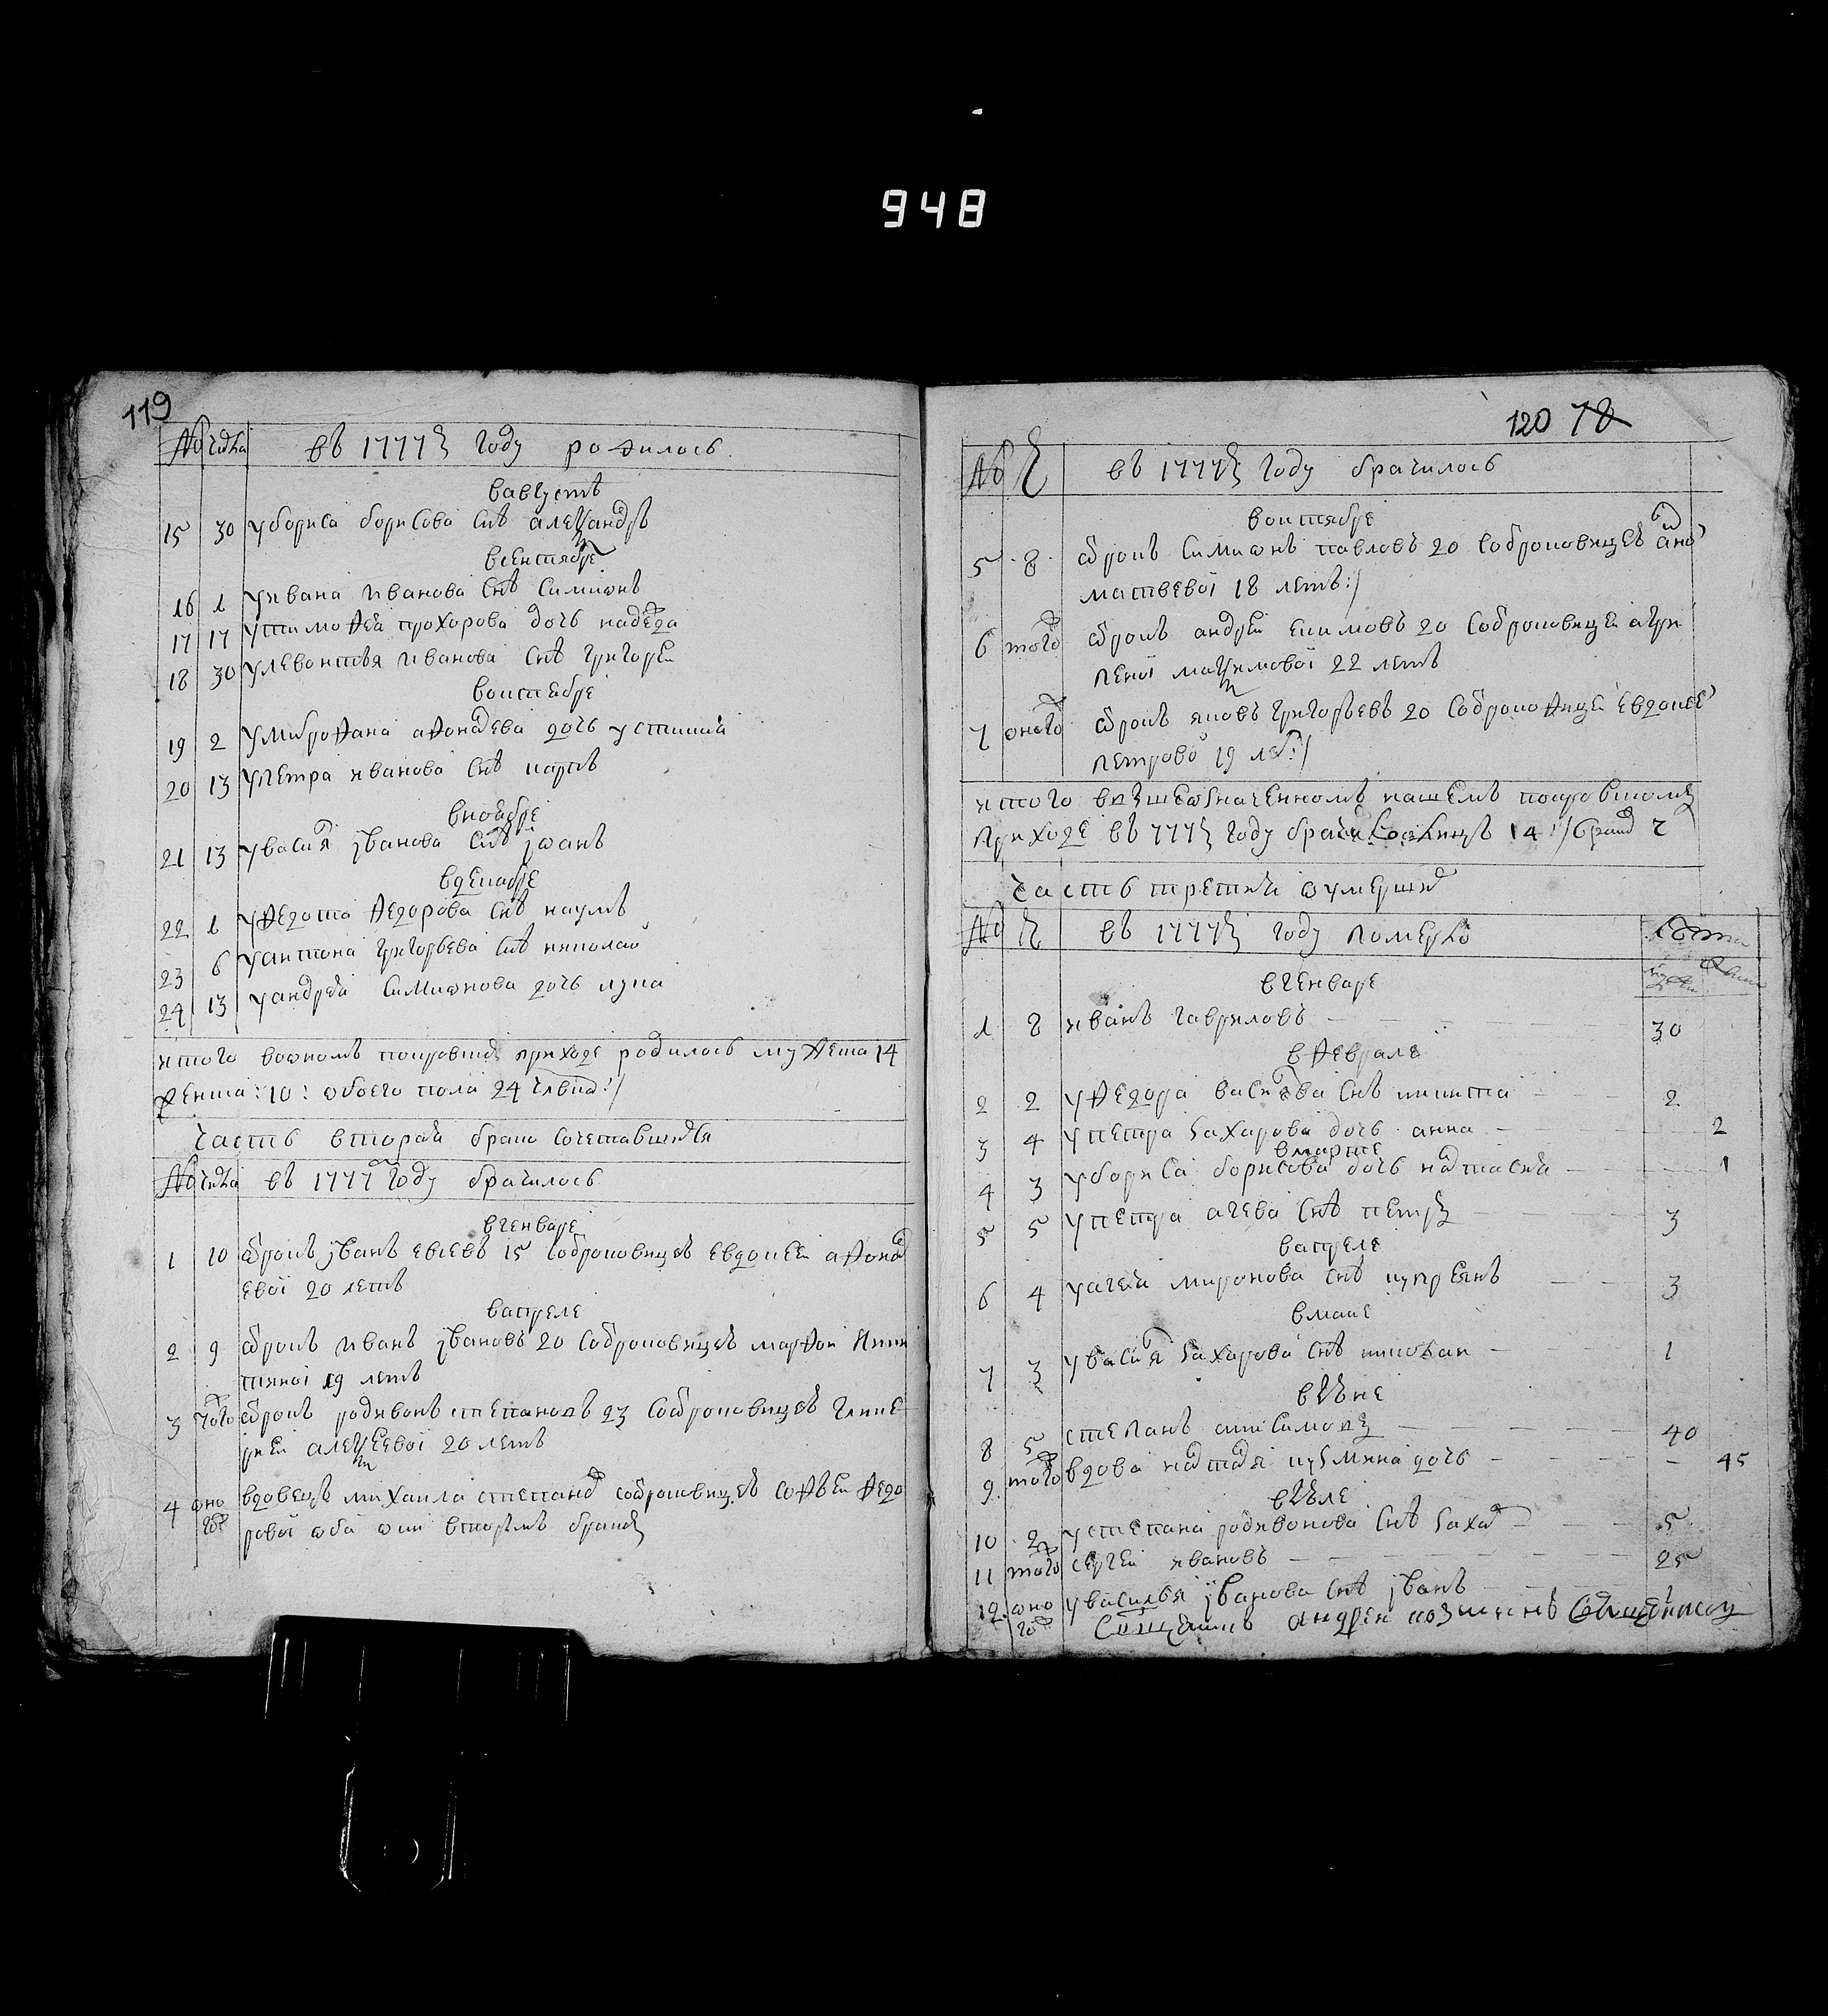 948
119
№ числа въ 1777м году родилось
вавгусте
15 30 убориса борисова снъ александръ
всентябре
16 1 уивана иванова снъ симионъ
17 17 утимофея прохорова дочь надежда
18 30 улевонтья иванова снъ григореи
воктебре
19 2 умитрофана афонасева дочь устиния
20 13 упетра иванова снъ карпъ
вноябре
21 13 увасиля іванова снъ іоанъ
вдекабре
22 1 уфедота федорова снъ наумъ
23 6 уантона григорьева снъ николаи
24 13 уандрея симионова дочь
итого воономъ покровскомъ приходе родилось мужеска 14
женска: 10: обоего пола 24 члвка:/
часть вторая брако сочетавшихся
№ числа въ 1777 году брачилось
вгенваре
1 10 отрокъ іванъ евсевъ 15 сотроковицеѣ евдокеи афонас
евои 20 летъ
вапреле
2 9 отрокъ иванъ івановъ 20 сотроковицеѣ марфои
19 летъ
3 того отрокъ родивонъ степановъ 23 сотроковицеѣ глике
риеи алексеевои 20 летъ
4 оно го вдовецъ михаила степановъ сотроковицеѣ софьеи федо
ровои оба они вторымъ бракомъ
120 78
№ Ч въ 1777м году брачилось
воктябре
5 8 отрокъ симионъ павловъ 20 сотроковицеѣ
матвевои 18 летъ:/
6 того отрокъ андреи екимовъ 20 сотроковицеи агри
пенои максимовои 22 летъ
7 оного отрокъ яковъ григорьевъ 20 сотроковицеи евдокее
петрово 19 лет:/
итого вышеозначенномъ нашемъ покровскомъ
приходе въ 777м году 14
часть третия о умершихъ
№ Ч въ 1777м году померло лета
вгенваре
1 8 иванъ гавриловъ 30
вфеврале
2 2 уфедора васильева снъ никита 2
3 4 упетра захарова дочь анна 2
вмарте
4 3 убориса борисова дочь настасия 1
5 5 упетра агева снъ петръ 3
вапреле
6 4 уагея миронова снъ куприянъ 3
вмаие
7 3 увасиля захарова снъ 1
віюне
8 5 степанъ 40
9 того вдова настася кузмина дочь 45
віюле
10 2 устепана родивонова снъ захаръ 5
11 того сергеи ивановъ 25
12 оно го увасилья іванова снъ іванъ
Сщенникъ андреи козминъ